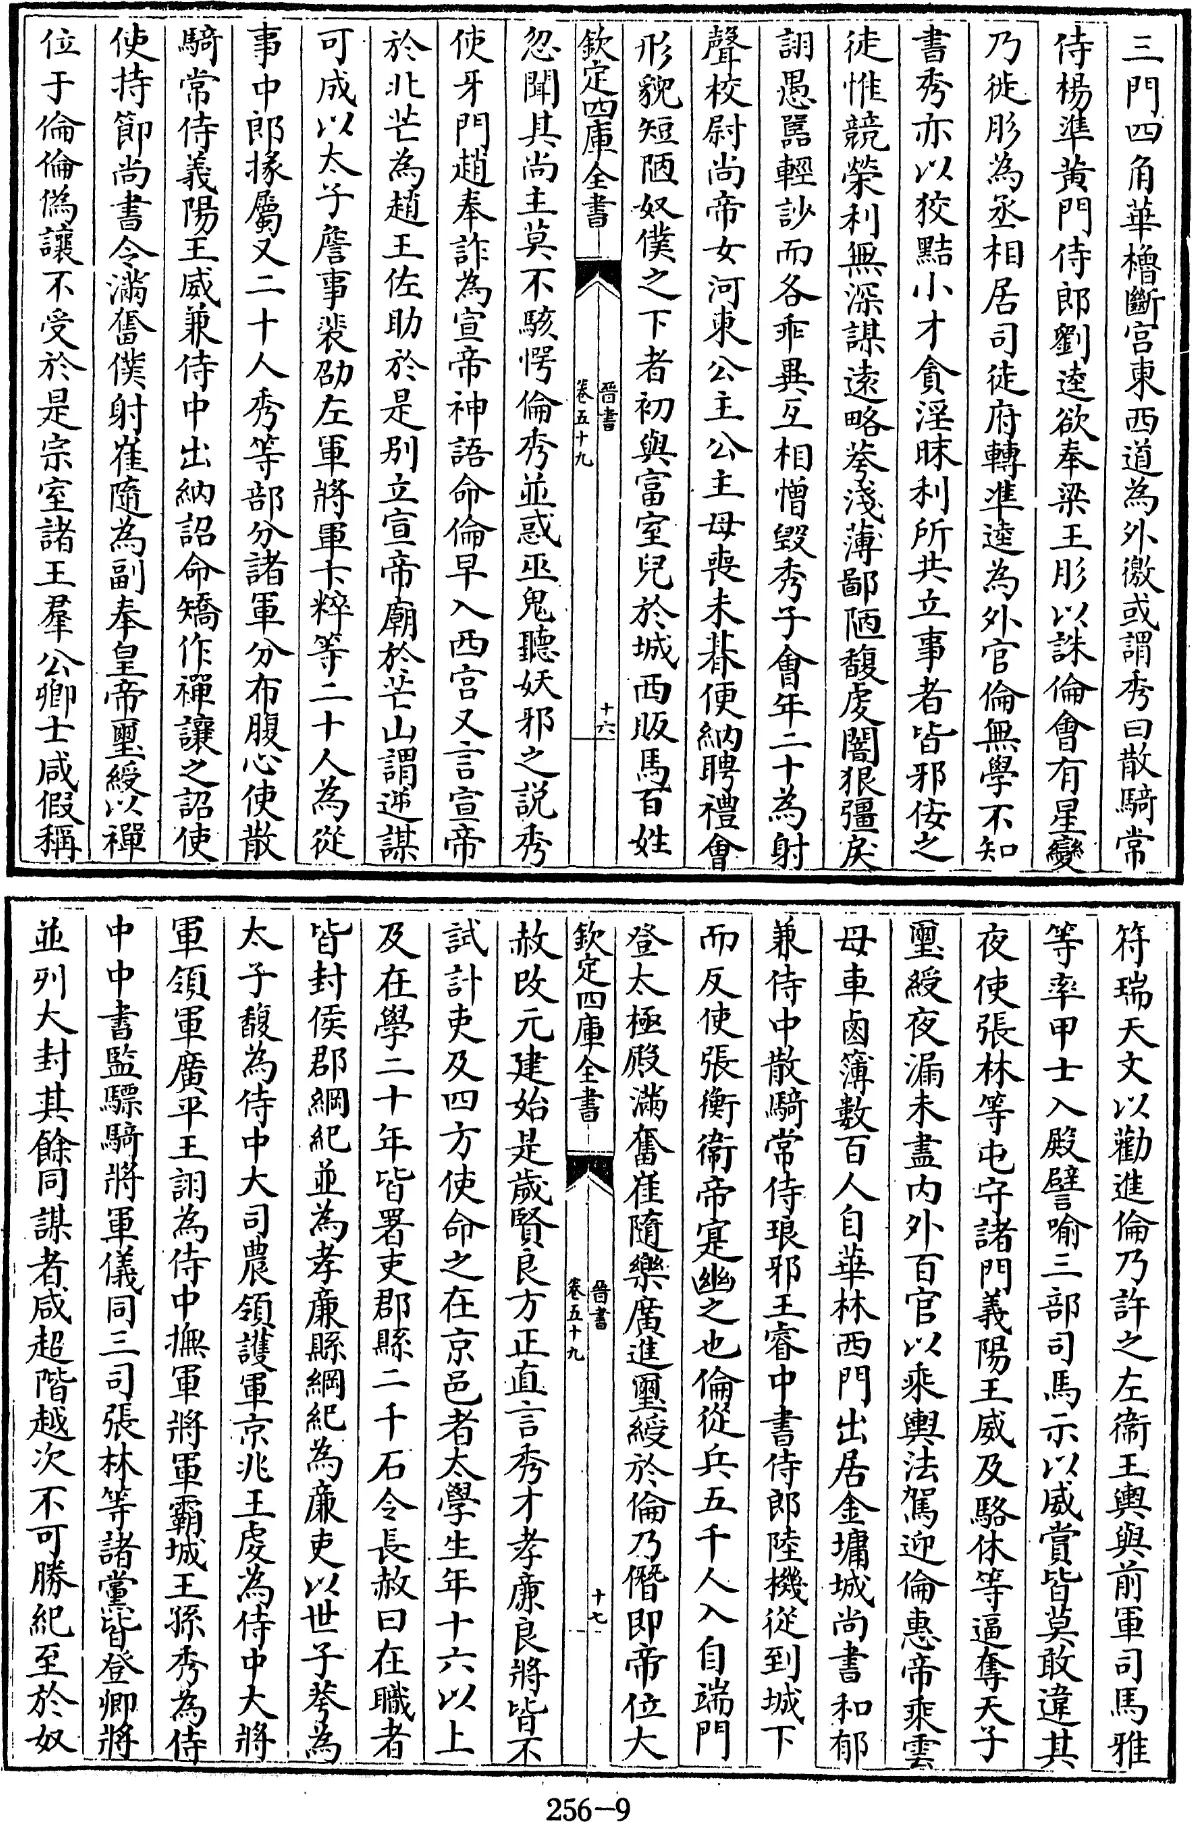 三門四角華櫓斷宮東西道為外徼或謂秀曰散騎常
侍楊準黄門侍郎劉逵欲奉梁王肜以誅倫會有星變
乃徙肜為丞相居司徒府轉準逵為外官倫無學不知
書秀亦以狡黠小才貪淫昧利所共立事者皆邪佞之
徒惟競榮利無深謀遠略荂淺薄鄙陋馥虔闇狠彊戾
詡愚嚚輕訬而各乖異互相憎毀秀子會年二十為射
聲校尉尚帝女河東公主公主母喪未朞便納聘禮會
形貌短陋奴僕之下者初與富室兒於城西販馬百姓
欽定四庫全書
晉書
卷五十九
十六
忽聞其尚主莫不駭愕倫秀並惑巫鬼聽妖邪之説秀
使牙門趙奉詐為宣帝神語命倫早入西宮又言宣帝
於北芒為趙王佐助於是别立宣帝廟於芒山謂逆謀
可成以太子詹事裴劭左軍將軍卞粹等二十人為從
事中郎掾屬又二十人秀等部分諸軍分布腹心使散
騎常侍義陽王威兼侍中出納詔命矯作禪讓之詔使
使持節尚書令滿奮僕射崔隨為副奉皇帝璽綬以禪
位于倫倫偽讓不受於是宗室諸王羣公卿士咸假稱
符瑞天文以勸進倫乃許之左衞王輿與前軍司馬雅
等率甲士入殿譬喻三部司馬示以威賞皆莫敢違其
夜使張林等屯守諸門義陽王威及駱休等逼奪天子
璽綬夜漏未盡内外百官以乘輿法駕迎倫惠帝乘雲
母車鹵簿數百人自華林西門出居金墉城尚書和郁
兼侍中散騎常侍琅邪王睿中書侍郎陸機從到城下
而反使張衡衞帝寔幽之也倫從兵五千人入自端門
登太極殿滿奮崔隨樂廣進璽綬於倫乃僭即帝位大
欽定四庫全書
晉書
卷五十九
十七
赦改元建始是歲賢良方正直言秀才孝廉良將皆不
試計吏及四方使命之在京邑者太學生年十六以上
及在學二十年皆署吏郡縣二千石令長赦日在職者
皆封侯郡綱紀並為孝廉縣綱紀為廉吏以世子荂為
太子馥為侍中大司農領護軍京兆王虔為侍中大將
軍領軍廣平王詡為侍中撫軍將軍霸城王孫秀為侍
中中書監驃騎將軍儀同三司張林等諸黨皆登卿將
並列大封其餘同謀者咸超階越次不可勝紀至於奴
256-9